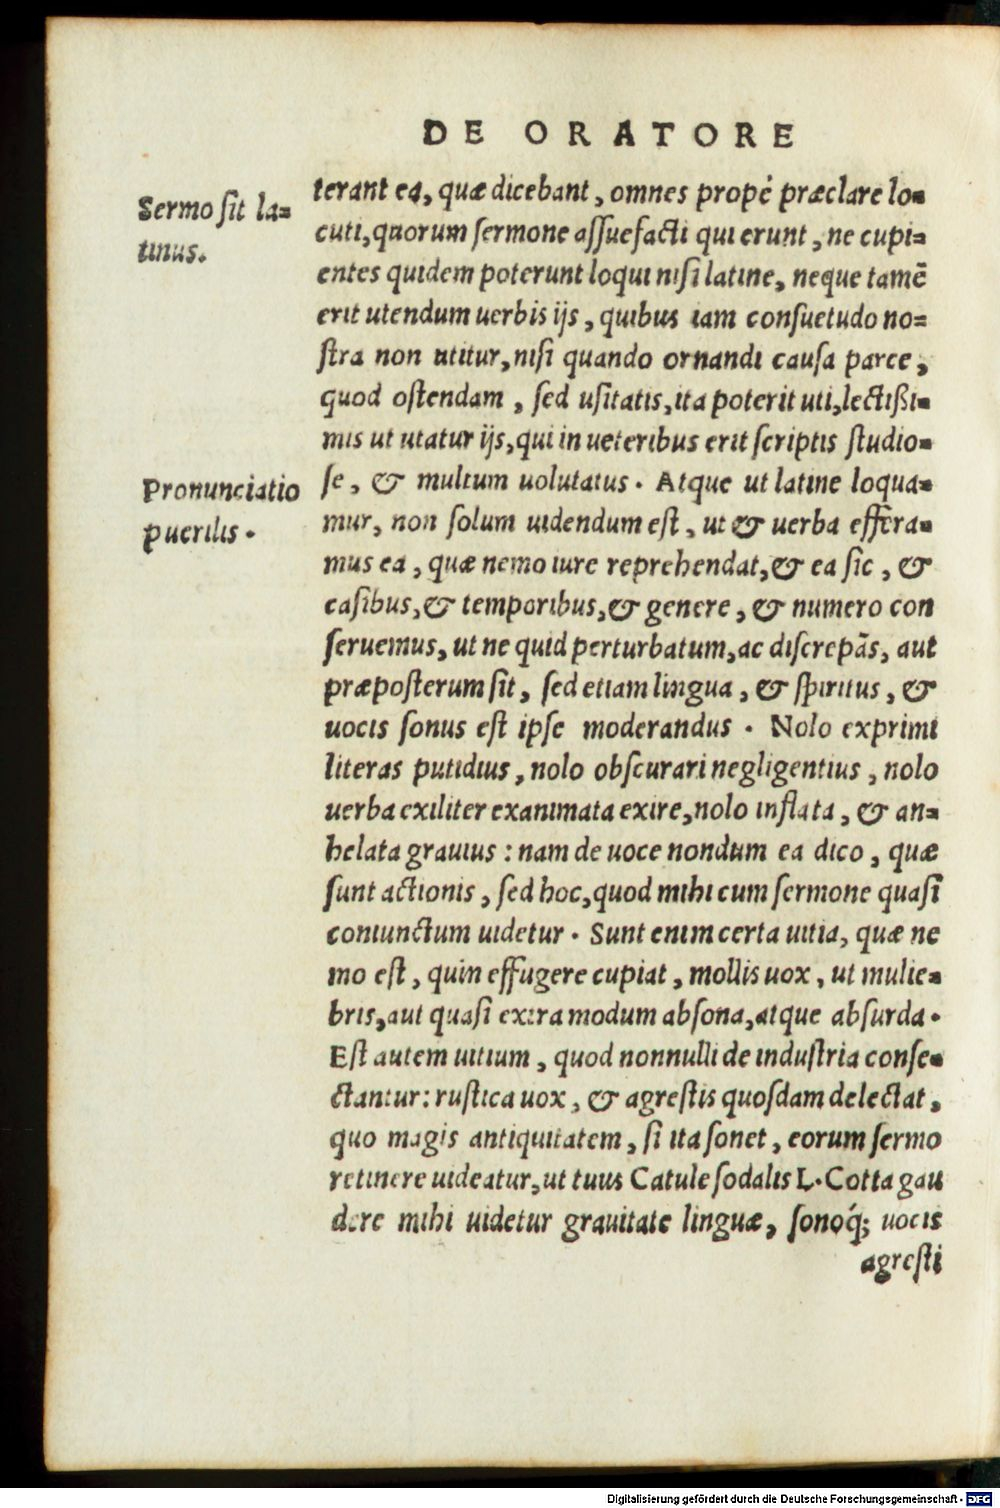 DE ORATORE
Sermo ſit la=
tinus.
terant ea, quæ dicebant, omnes propè præclare lo=
cuti, quorum ſermone aſſuefacti qui erunt, ne cupi=
entes quidem poterunt loqui niſi latine, neque tamē
erit utendum uerbis ijs, quibus iam conſuetudo no=
ſtra non utitur, niſi quando ornandi cauſa parce,
quod oſtendam, ſed uſitatis, ita poterit uti, lectißi=
mis ut utatur ijs, qui in ueteribus erit ſcriptis ſtudio=
Pronunciatio
puerilis.
ſe, & multum uolutatus. Atque ut latine loqua=
mur, non ſolum uidendum eſt, ut & uerba effera=
mus ea, quæ nemo iure reprehendat, & ea ſic, &
caſibus, & temporibus, & genere, & numero con
ſeruemus, ut ne quid perturbatum, ac diſcrepās, aut
præpoſterum ſit, ſed etiam lingua, & ſpiritus, &
uocis ſonus eſt ipſe moderandus. Nolo exprimi
literas putidius, nolo obſcurari negligentius, nolo
uerba exiliter exanimata exire, nolo inflata, & an=
helata grauius: nam de uoce nondum ea dico, quæ
ſunt actionis, ſed hoc, quod mihi cum ſermone quaſi
coniunctum uidetur. Sunt enim certa uitia, quæ ne
mo eſt, quin effugere cupiat, mollis uox, ut mulie=
bris, aut quaſi extra modum abſona, atque abſurda.
Eſt autem uitium, quod nonnulli de induſtria conſe=
ctantur: ruſtica uox, & agreſtis quoſdam delectat,
quo magis antiquitatem, ſi ita ſonet, eorum ſermo
retinere uideatur, ut tuus Catule ſodalis L. Cotta gau
dere mihi uidetur grauitate linguæ, ſonoq́; uocis
agreſti
Digitalisierung gefördert durch die Deutsche Forschungsgemeinschaft - DFG